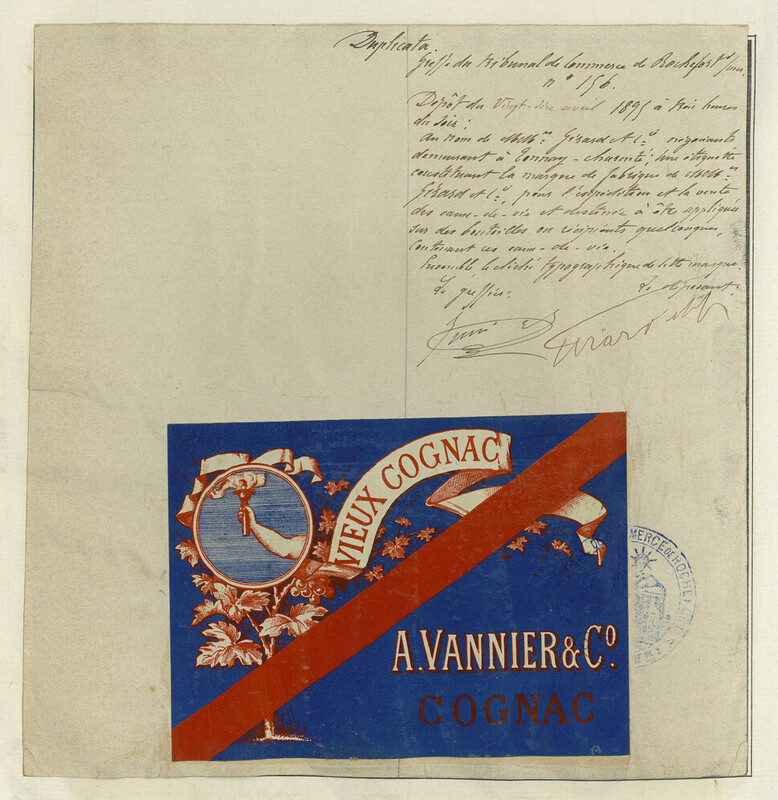 Duplicata.
Greffe du tribunal de commerce de Rochefort s/mer
n° 156.
Dépôt du Vingt-six avril 1895 à trois heures
du soir;
Au nom de MM. Gérard et Cie négociants
demeurant à Tonnay-charente; une étiquette
constituant la marque de fabrique de MM.
Gérard et Cie, pour l'expédition et la vente
des eaux-de-vie et destinée à être appliquée
sur des bouteilles ou récipients quelconques,
contenant ces eaux-de-vie.
Ensemble le cliché typographique de cette marque.
Le greffier: Le déposant:
Gérard et Cie
VIEUX COGNAC
A. VANNIER & Co.
COGNAC
MERCE DE ROCHEFORT